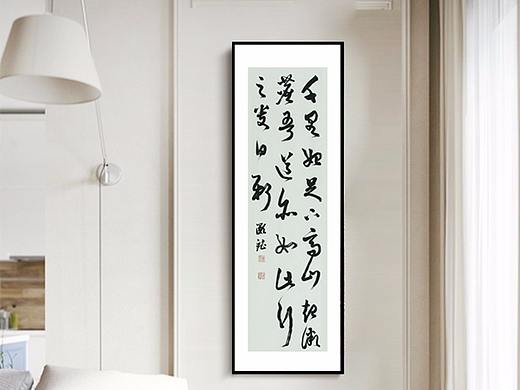 千里始足下高山起微
塵吾道亦如此行
之貴日新